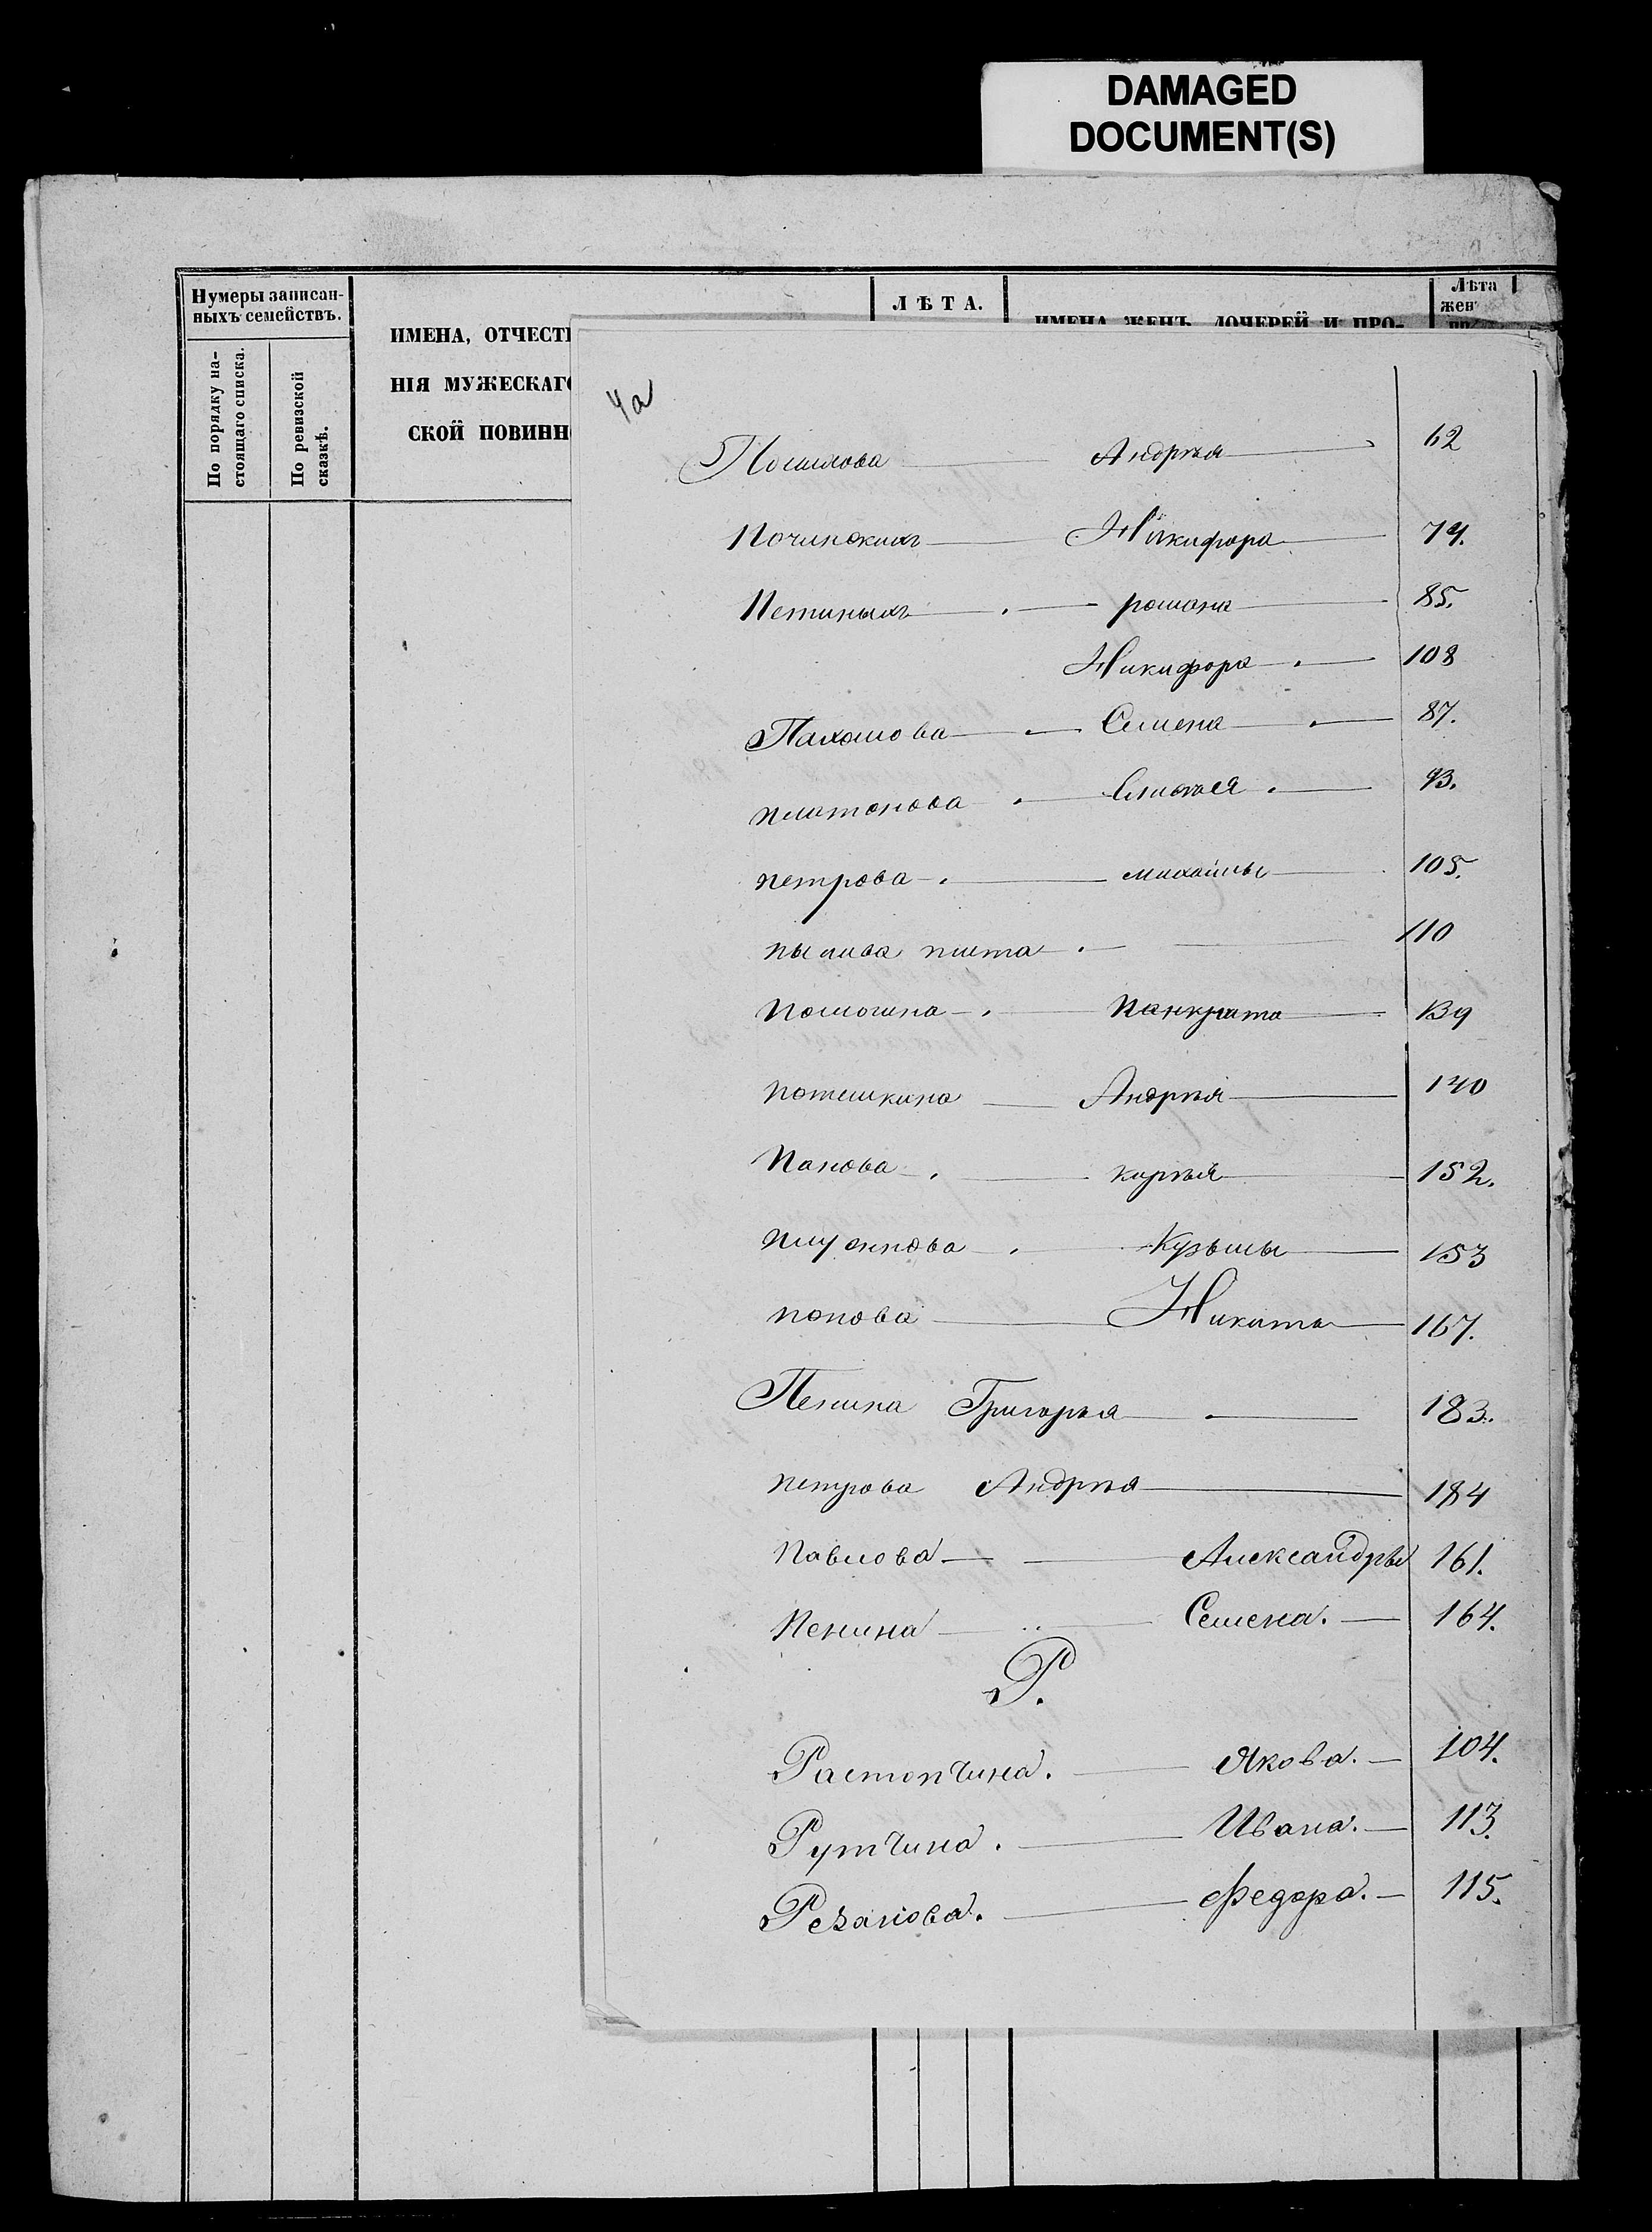 DAMAGED
DOCUMENT(S)
Нумеры записан-
ныхъ семействъ.
По порядку на-
стоящаго списка.
По ревизской
сказкѣ.
ИМЕНА, ОТЧЕСТ
НІЯ МУЖЕСКАГО
СКОЙ ПОВИНН
ЛѢТА.
ИМЕНА ЖЕНЪ, ДОЧЕРЕЙ И ПРО-
Лѣта
жен
4а
Андрѣя 62
Починскихъ Никифора 74.
Петиныхъ романа 85.
Никифора 108
Пахомова Семена 87.
платонова Елисѣя 93.
петрова михайлы 105.
110
Помогина Панкрата 139
потемкина Андрѣя 140
Панова 152.
Кузьмы 153
попова Никиты 167.
Пенина Григорья 183.
петрова Андрѣя 184
Павлова Александры 161.
Пенина Семена. 164.
Р.
Растопчина. Якова. 104.
Рутчина. Ивана. 113.
Резанова. Федора. 115.